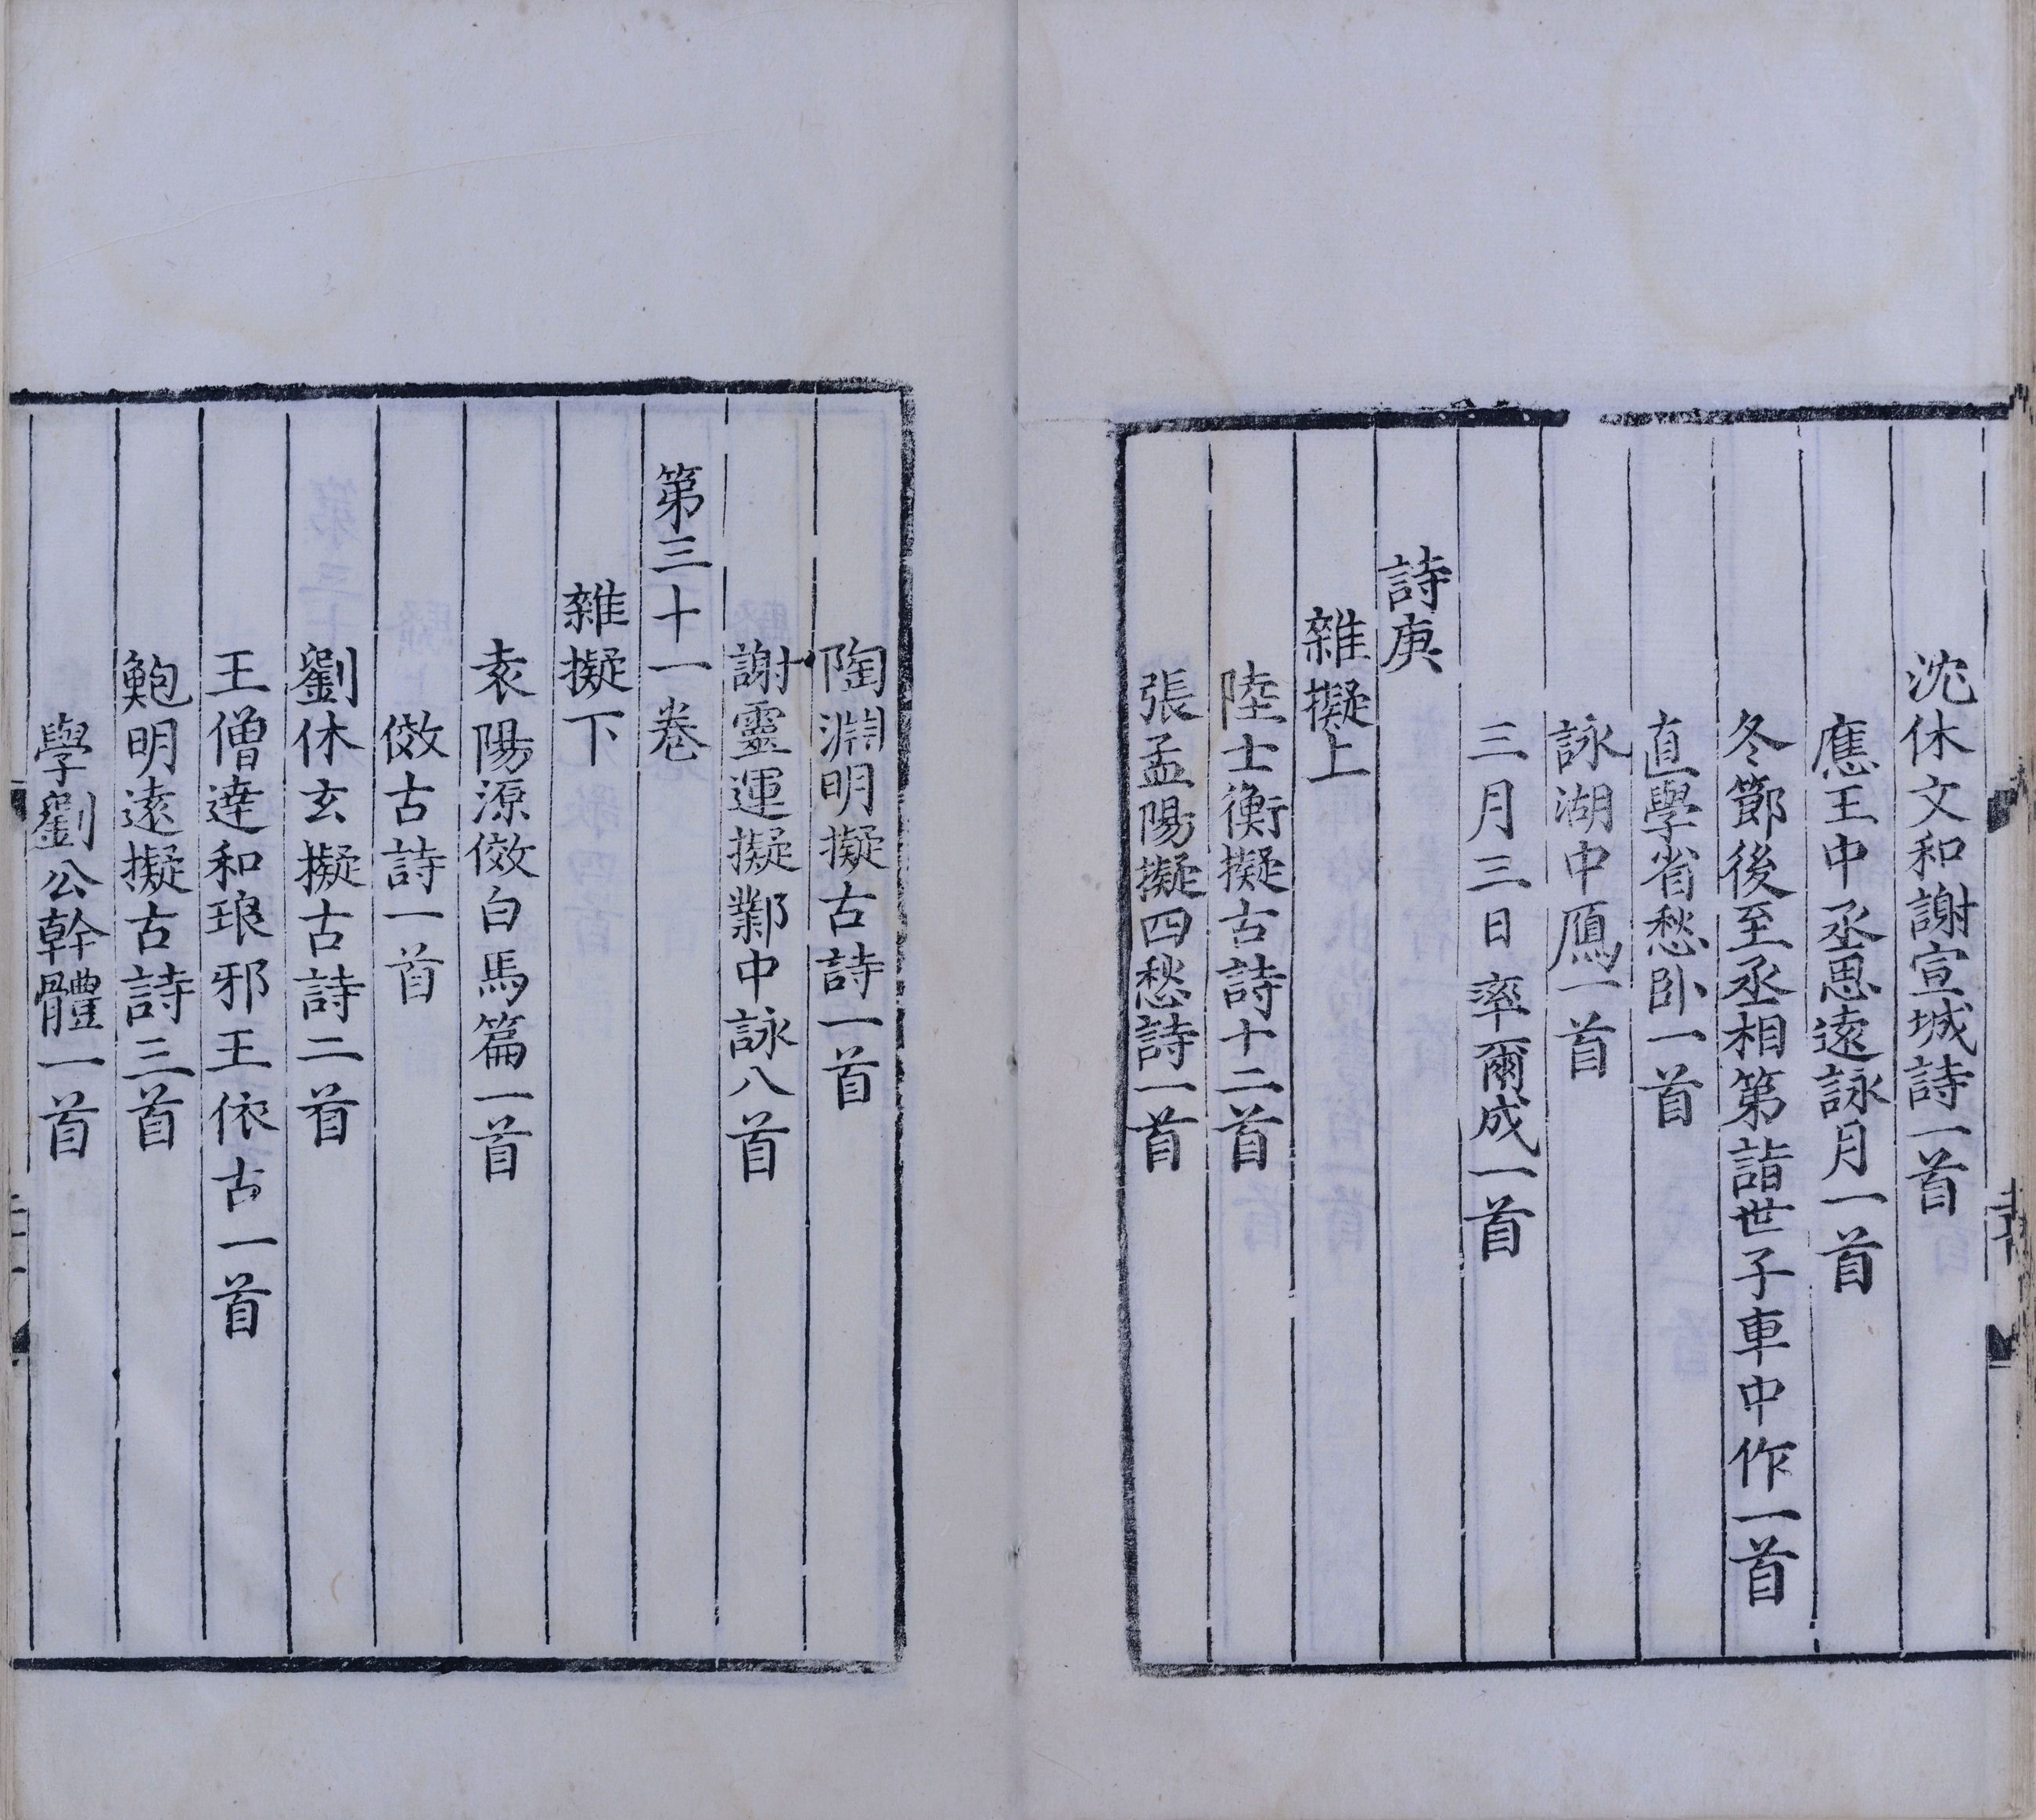 沈休文和謝宣城詩一首
應王中丞思遠詠月一首
冬節後至丞相第詣世子車中作一首
直學省愁卧一首
詠湖中鴈一首
三月三日率爾成一首
詩庚
雜擬上
陸士衡擬古詩十二首
張孟陽擬四愁詩一首
陶淵明擬古詩一首
謝靈運擬鄴中詠八首
第三十一卷
雜擬下
袁陽源傚白馬篇一首
傚古詩一首
劉休玄擬古詩二首
王僧達和琅邪王依古一首
鮑明遠擬古詩三首
學劉公幹體一首